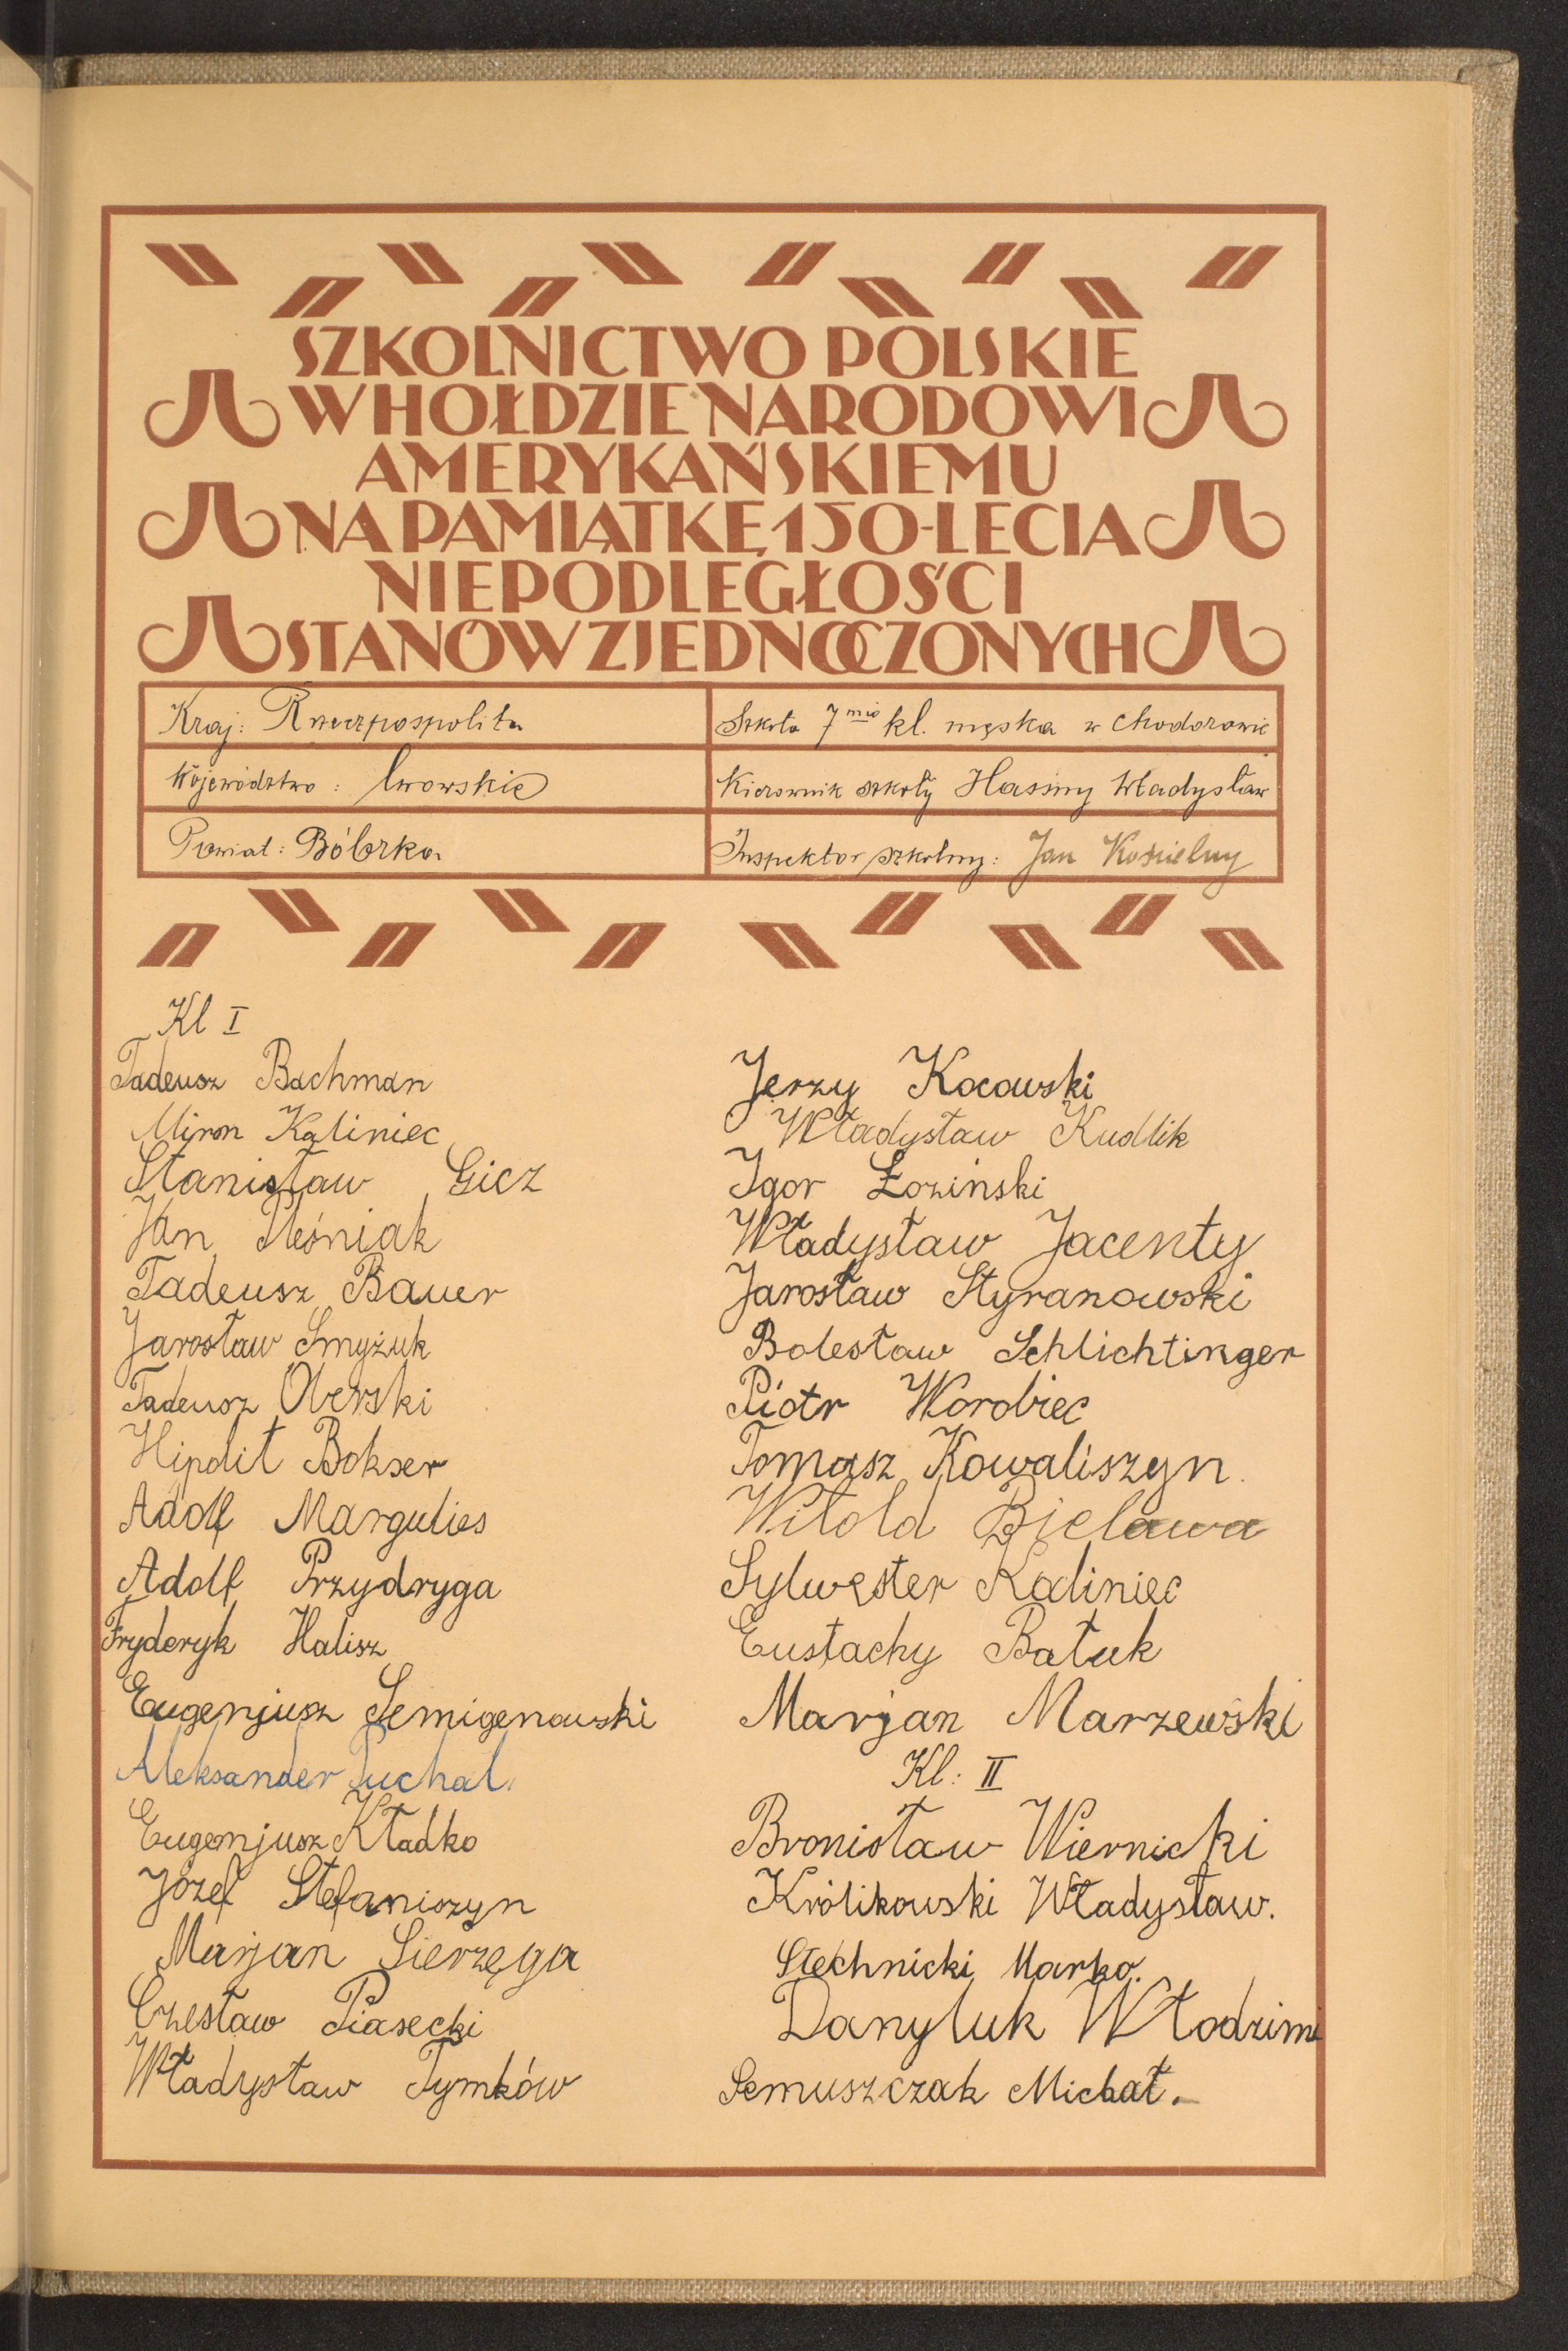 SZKOLNICTWO POLSKIE
W HOŁDZIE NARODOWI
AMERYKAŃSKIEMU
NA PAMIĄTKĘ 150-LECIA
NIEPODLEGŁOŚCI
STANÓW ZJEDNOCZONYCH
Kraj: Rzeczpospolita
Szkoła 7mio kl. męska w Chodorowie
Województwo: lwowskie
Kierownik szkoły Hassny Władysław
Powiat: Bóbrka
Inspektor szkolny: Jan Kościelny
Kl I
Tadeusz Bachman
Miron Kaliniec
Stanisław Gicz
Jan Pleśniak
Tadeusz Bauer
Jarosław Smyżuk
Tadeusz Oberski
Hipolit Bokser
Adolf Margulies
Adolf Przydryga
Fryderyk Halisz
Eugenjusz Semigenowski
Aleksander Puchal.
Eugenjusz Kładko
Józef Stefaniszyn
Marjan Sierzęga
Czesław Piasecki
Władysław Tymków
Jerzy Kocowski
Władysław Kudlik
Igor Łoziński
Władysław Jacenty
Jarosław Styranowski
Bolesław Schlichtinger
Piotr Worobiec
Tomasz Kowaliszyn.
Witold Bielawa
Sylwester Kaliniec
Eustachy Batuk
Marjan Marzewski
Kl: II
Bronisław Wiernicki
Królikowski Władysław.
Stechnicki Marko.
Danyluk Włodzimi
Semuszczak Michał.